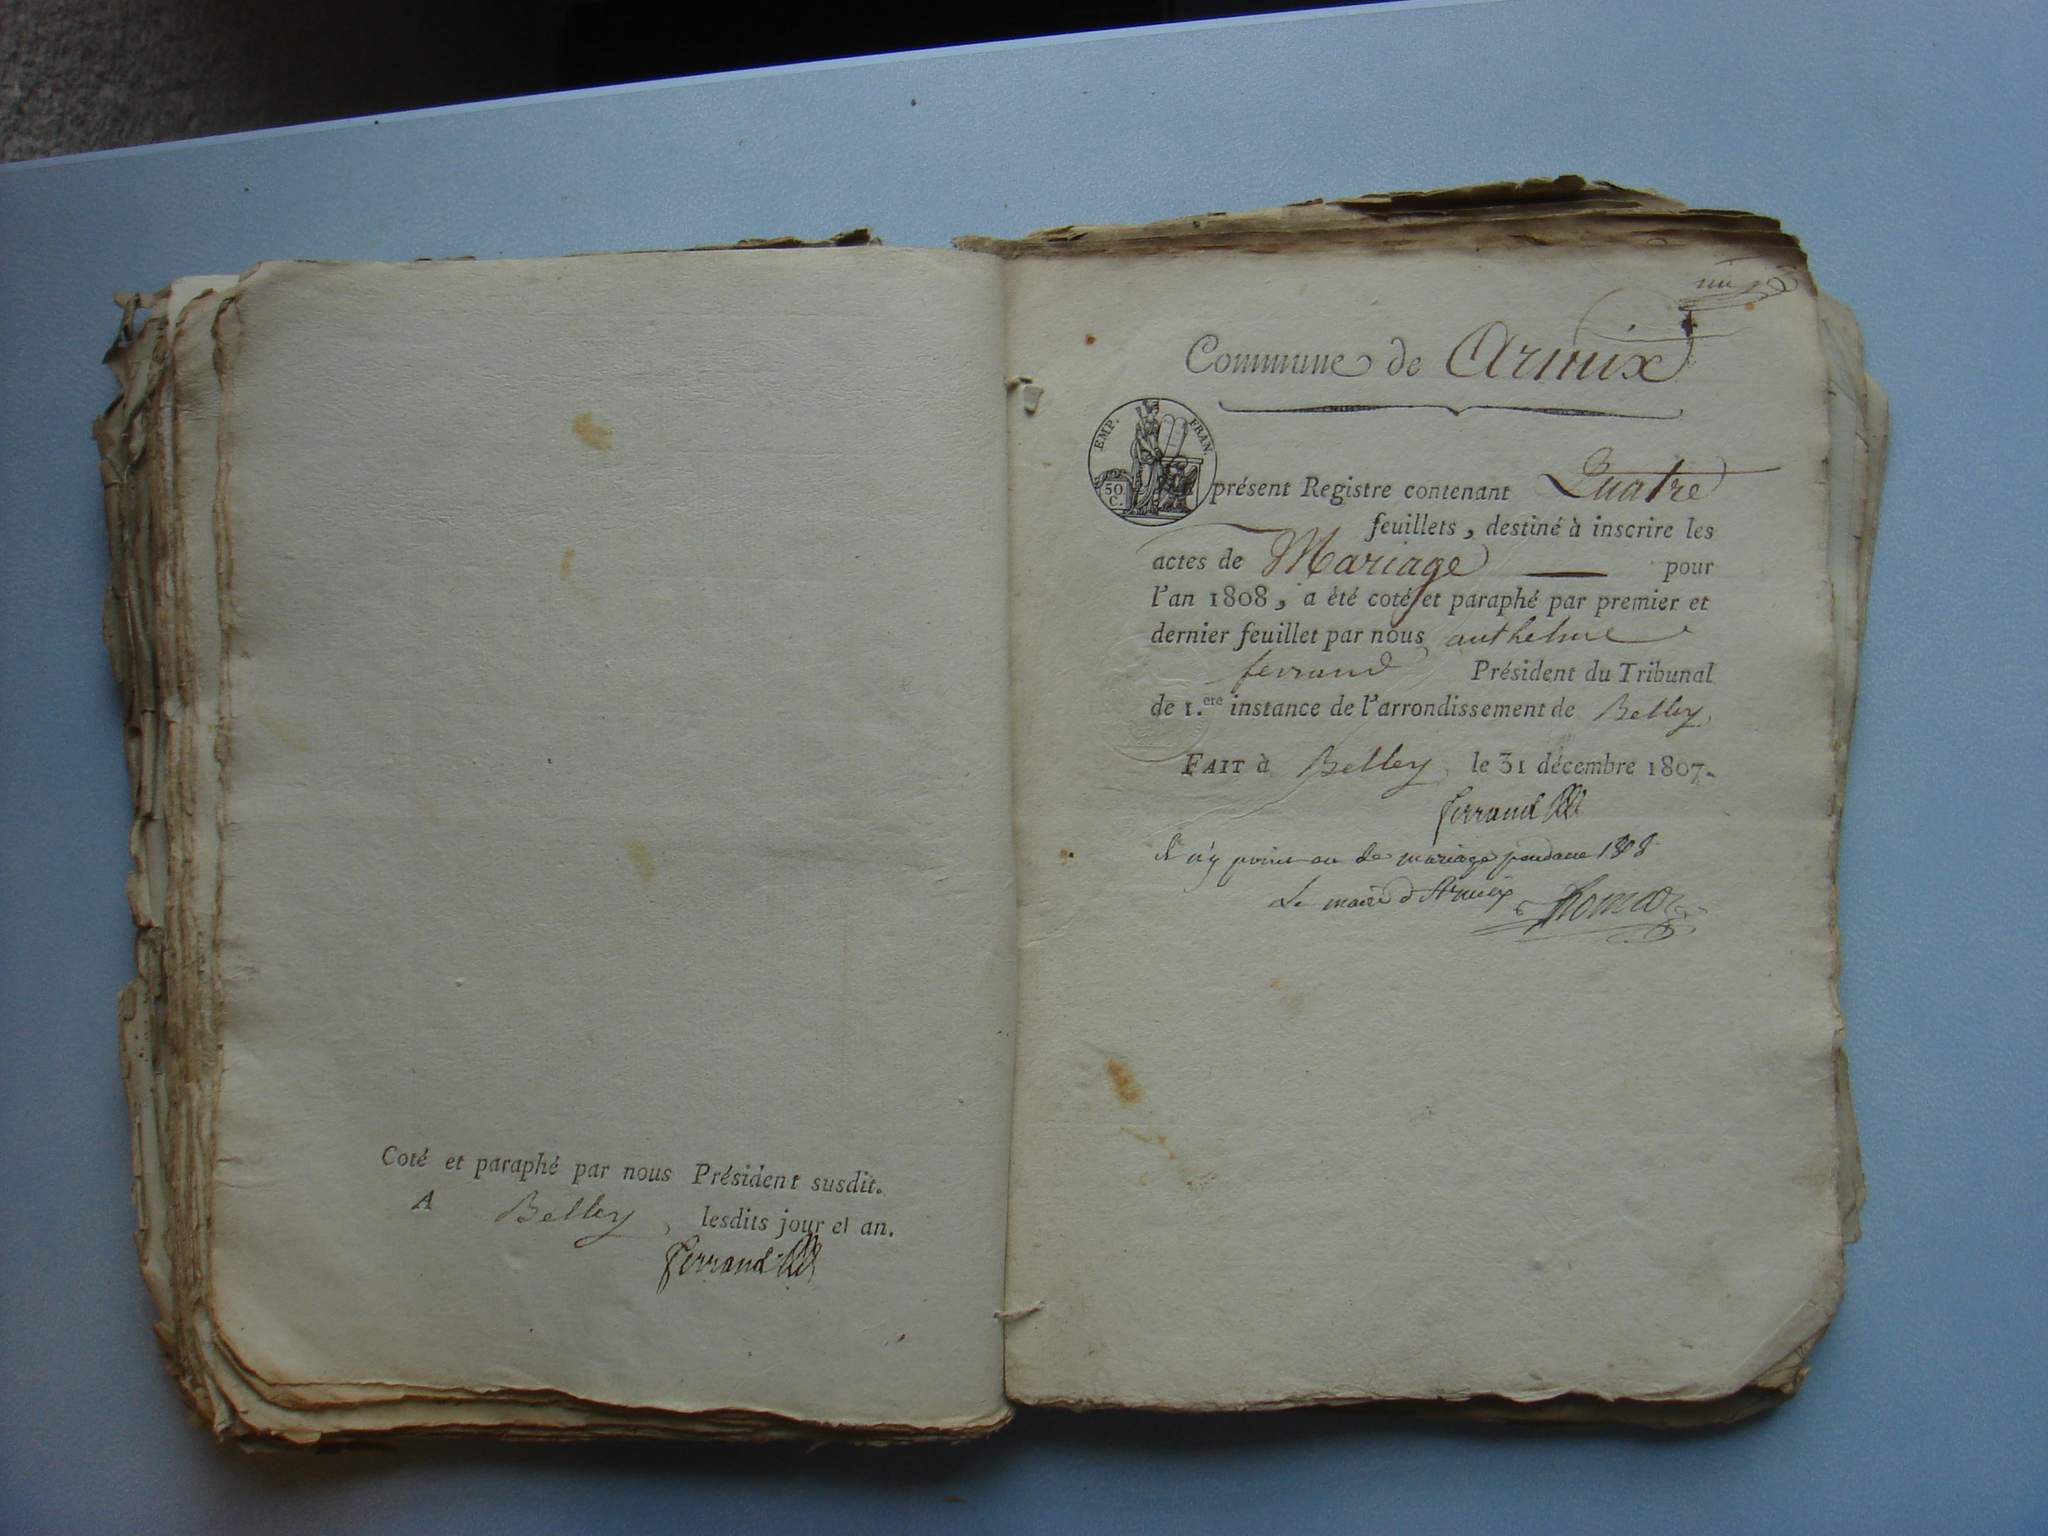 Coté et paraphé par nous Président susdit.
A Belley, lesdits jour et an.
ferrand
Commune de Armix
EMP. FRAN.
50 C.
présent Registre contenant Quatre
feuillets, destiné à inscrire les
actes de Mariage — pour
l'an 1808, a été coté et paraphé par premier et
dernier feuillet par nous anthelme
ferrand Président du Tribunal
de 1.ere instance de l'arrondissement de Belley,
FAIT à Belley, le 31 décembre 1807.
ferrand
il n'y point eu de mariage pendant 1808
Le maire d'Armix